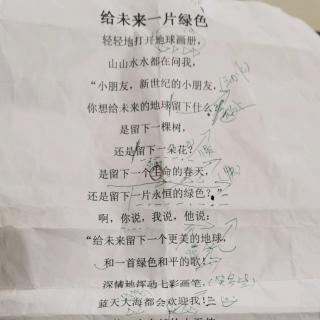 给未来一片绿色
轻轻地打开地球画册，
山山水水都在问我，
“小朋友，新世纪的小朋友，
你想给未来的地球留下什么？
是留下一棵树，
还是留下一朵花？
是留下一个生命的春天，
还是留下一片永恒的绿色？”
啊，你说，我说，他说：
“给未来留下一个更美的地球，
和一首绿色和平的歌！
深情地挥动七彩画笔，
蓝天大海都会欢迎我！